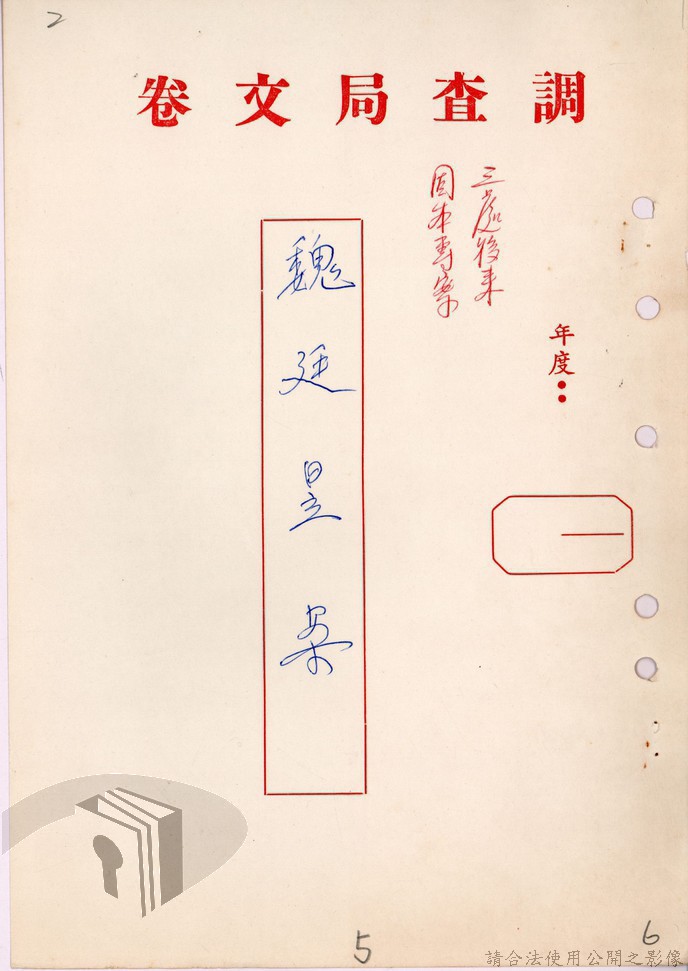 2
調查局文卷
三處移來
固本專案
年度：
魏廷昱案
5
6
請合法使用公開之影像